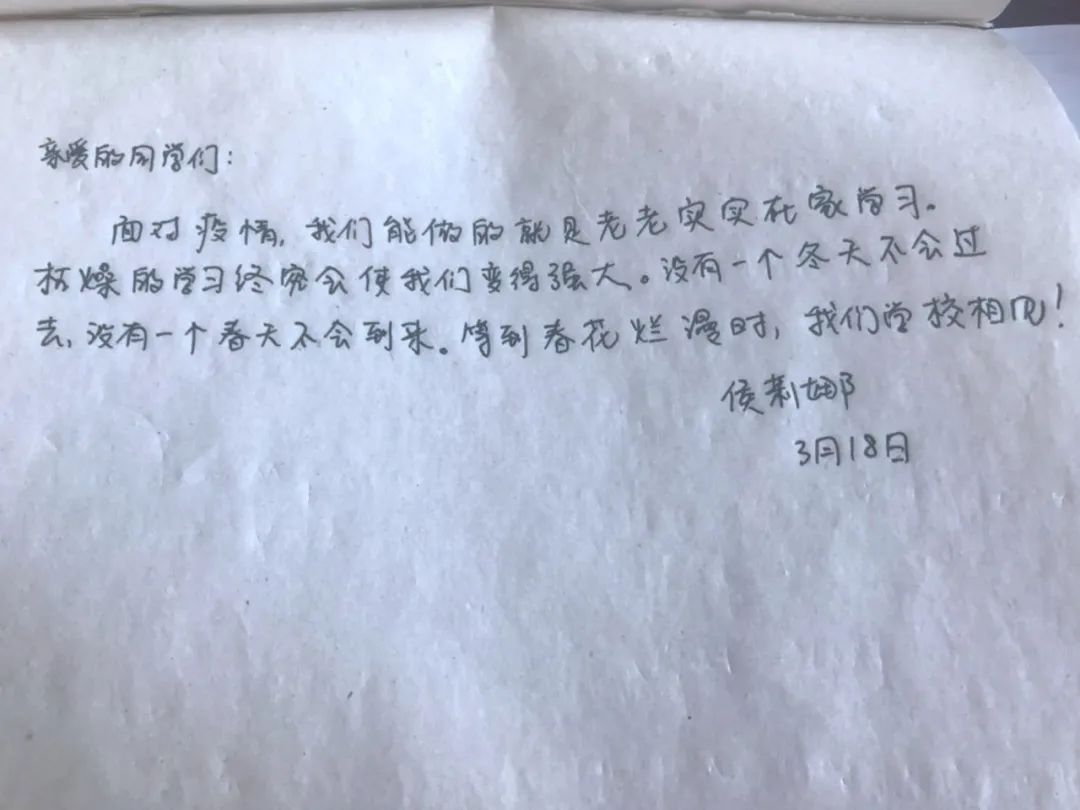 亲爱的同学们：
面对疫情，我们能做的就是老老实实在家学习。
枯燥的学习终究会使我们变得强大。没有一个冬天不会过
去，没有一个春天不会到来。等到春花烂漫时，我们学校相见！
侯莉娜
3月18日